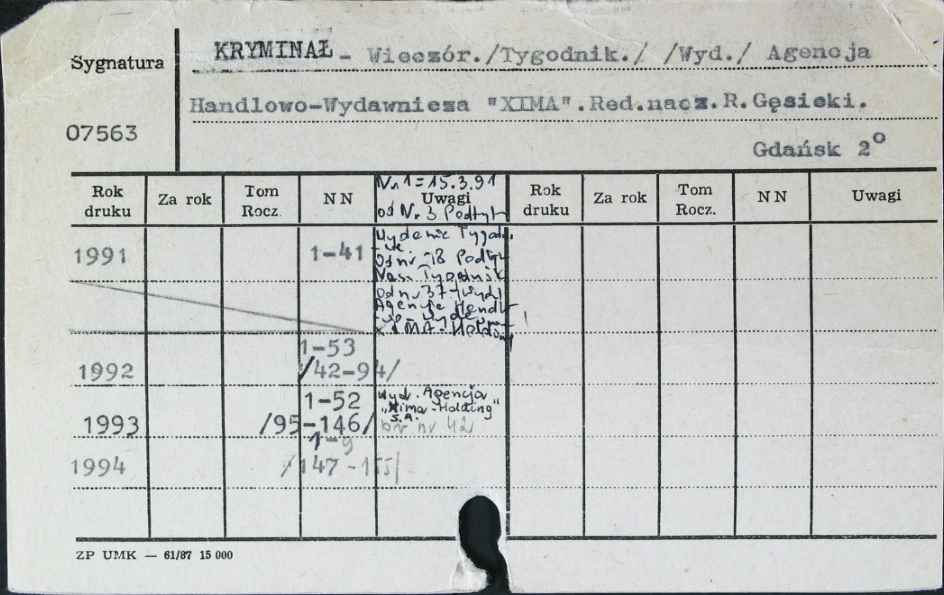 Sygnatura
07563
KRYMINAŁ - Wieczór./Tygodnik./ /Wyd./ Agencja
Handlowo-Wydawnicza "XIMA".Red.nacz.R.Gęsicki.
Gdańsk 2°
Rok druku Za rok Tom Rocz. NN Uwagi Rok druku Za rok Tom Rocz. NN Uwagi
Nr 1 = 15.3.91
od Nr 3 Podtyt
1991 1-41
Wydanie Tygodn.
Od nr 18 Podty
Nasz Tygodnik
Od nr 37 Wyd
Agencja Handl
XIMA-Holding
1992 1-53
/42-94/
1993 1-52
/95-146/
Wyd. Agencja
"Xima-Holding"
S.A.
br nr 42
1994 1-9
/147-155/
ZP UMK — 61/87 15 000